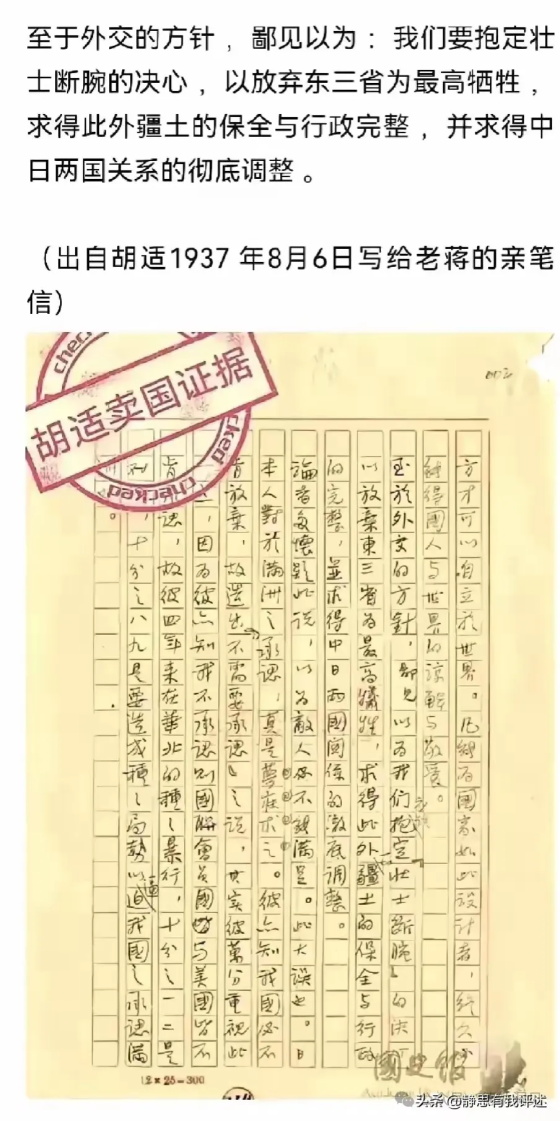 至于外交的方针，鄙见以为：我们要抱定壮
士断腕的决心，以放弃东三省为最高牺牲，
求得此外疆土的保全与行政完整，并求得中
日两国关系的彻底调整。
（出自胡适1937 年8月6日写给老蒋的亲笔
信）
checked
胡适卖国证据
checked
002
方才可以自立於世界。凡能为國家如此設計者，終久
能得國人与世界的諒解与敬爱。
至於外交的方針，鄙見以为我们抱定壮士断腕的决
以放棄東三省为最高犧牲，求得此外疆土的保全与行政
的完整，並求得中日兩國関係的澈底調整。
論者多懷疑此說，以为敵人必不能滿足。此大誤也。日
本人對於滿洲之承認，真是夢在求之。彼亦知我國必不
肯放棄，故選出「不需要承認」之說，其实彼萬分重視此
，因为彼亦知我不承認則國聯會員國与美國皆不
肯承認，故彼四年来在華北的種々暴行，十分之一二是
，十分之八九是要造成種々局勢以逼我國之承認滿
。
12×25=300
國史館
头条@静思有我评述